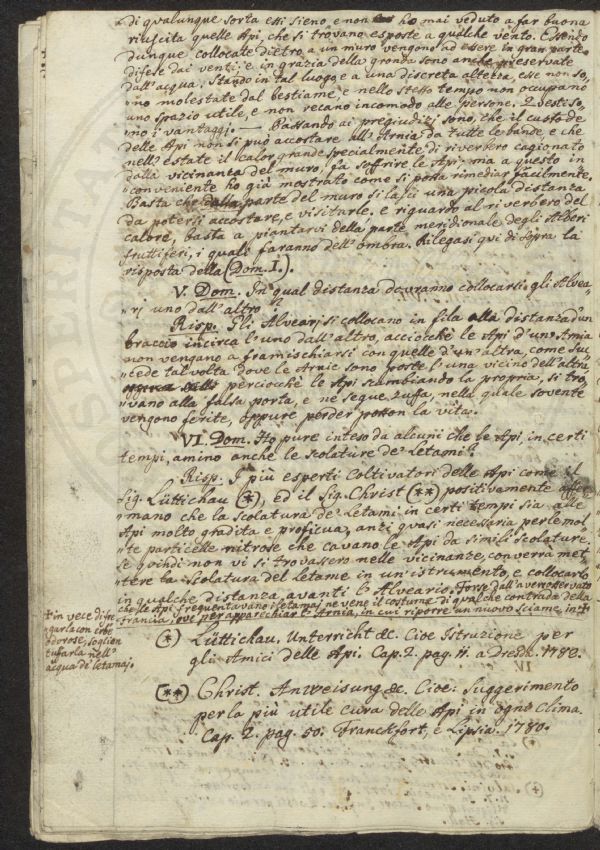 di qualunque sorta essi sieno, e non ho mai veduto a far buona
riuscita quelle Api, che si trovano esposte a qualche vento. Essendo
dunque collocate dietro a un muro vengono ad essere in gran parte
difese dai venti, e in grazia della gronda sono anche preservate
dall'acqua. Stando in tal luogo, e a una discreta altezza, esse non so,
=no molestate dal bestiame, e nello stesso tempo non occupano
uno spazio utile, e non recano incomodo alle persone. Questi so,
=no i vantaggi. — Passando ai pregiudizj sono, che il custode
delle Api non si può accostare all'Arnia da tutte le bande, e che
nell'estate il calor grande specialmente di riverbero cagionato
dalla vicinanza del muro, fa soffrire le Api: ma a questo in
=conveniente ho già mostrato come si possa rimediar facilmente.
Basta che dalla parte del muro si lasci una picola distanza
da potersi accostare, e visitarle. e riguardo al riverbero del
calore, basta a piantarvi della parte meridionale degli Alberi
fruttiferi, i quali faranno dell'ombra. Rilegasi qui di sopra la
risposta della (Dom. I.).
V. Dom. In qual distanza dovranno collocarsi gli Alvea=
=rj uno dall'altro?
Risp. Gli Alvearj si collocano in fila alla distanza d'un
braccio incirca l'uno dall'altro, acciocchè le Api d'un'Arnia
non vengano a framischiarsi con quelle d'un'altra, come suc=
cede tal volta dove le Arnie sono poste l'una vicino dell'altra,
perciocchè le Api scambiando la propria, si tro=
=vano alla falsa porta, e ne segue zuffa, nella quale sovente
vengono ferite, oppure perder posson la vita.
VI. Dom. Ho pure inteso da alcuni che le Api, in certi
tempi, amino anche le Scolature de' Letami?
Risp. I più esperti Coltivatori delle Api come il
Sig. Lüttichau (*), ed il Sig. Christ (**) positivamente affer=
mano che la scolatura de' Letami in certi tempi sia alle
Api molto gradita e proficua, anzi quasi necessaria per le mol=
=te particelle nitrose che cavano le Api da simili scolature.
Se quindi non vi si trovassero nelle vicinanze, converrà met=
=tere la scolatura del letame in un istrumento, e collocarlo
in qualche distanza avanti l'Alveario. Forse dall'aver osservato
che le Api frequentavano i letamaj ne vene il costume di qualche contrada della
Francia, ove per apparechiar l'Arnia, in cui riporre un nuovo sciame, in +
+ in vece di fre
garla con erbe
odorose, soglion
tuffarla nell'
acqua di letamaj.
(*) Lüttichau, Unterricht &c. Cioe Istruzione per
gli Amici delle Api. Cap. 2. pag. 11. a Dresd. 1782.
(**) Christ. Anweisung &c. Cioe: Suggerimento
per la più utile cura delle Api in ogni Clima.
Cap. 2. pag. 50. Franckfort, e Lipsia. 1780.